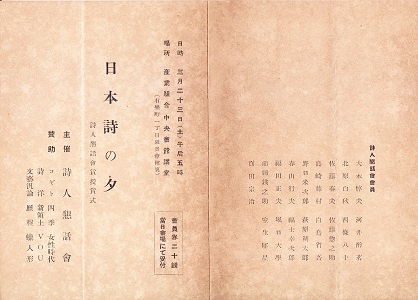 詩人懇話會會員
大木惇夫 河井醉茗
北原白秋 西條八十
佐藤春夫 佐藤惣之助
島崎藤村 白鳥省吾
野口米次郎 萩原朔太郎
春山行夫 福士幸次郎
福田正夫 堀口大學
前田鐵之助 室生犀星
百田宗治
日時 三月二十三日(土)午后五時
場所 産業組合中央會館講堂
日本詩の夕
詩人懇話會賞授賞式
會員券三十錢
當日會場にて受付
主催 詩人懇話會
賛助
コギト 四季 女性時代
詩洋 新領土 VOU
文藝汎論 歷程 蠟人形